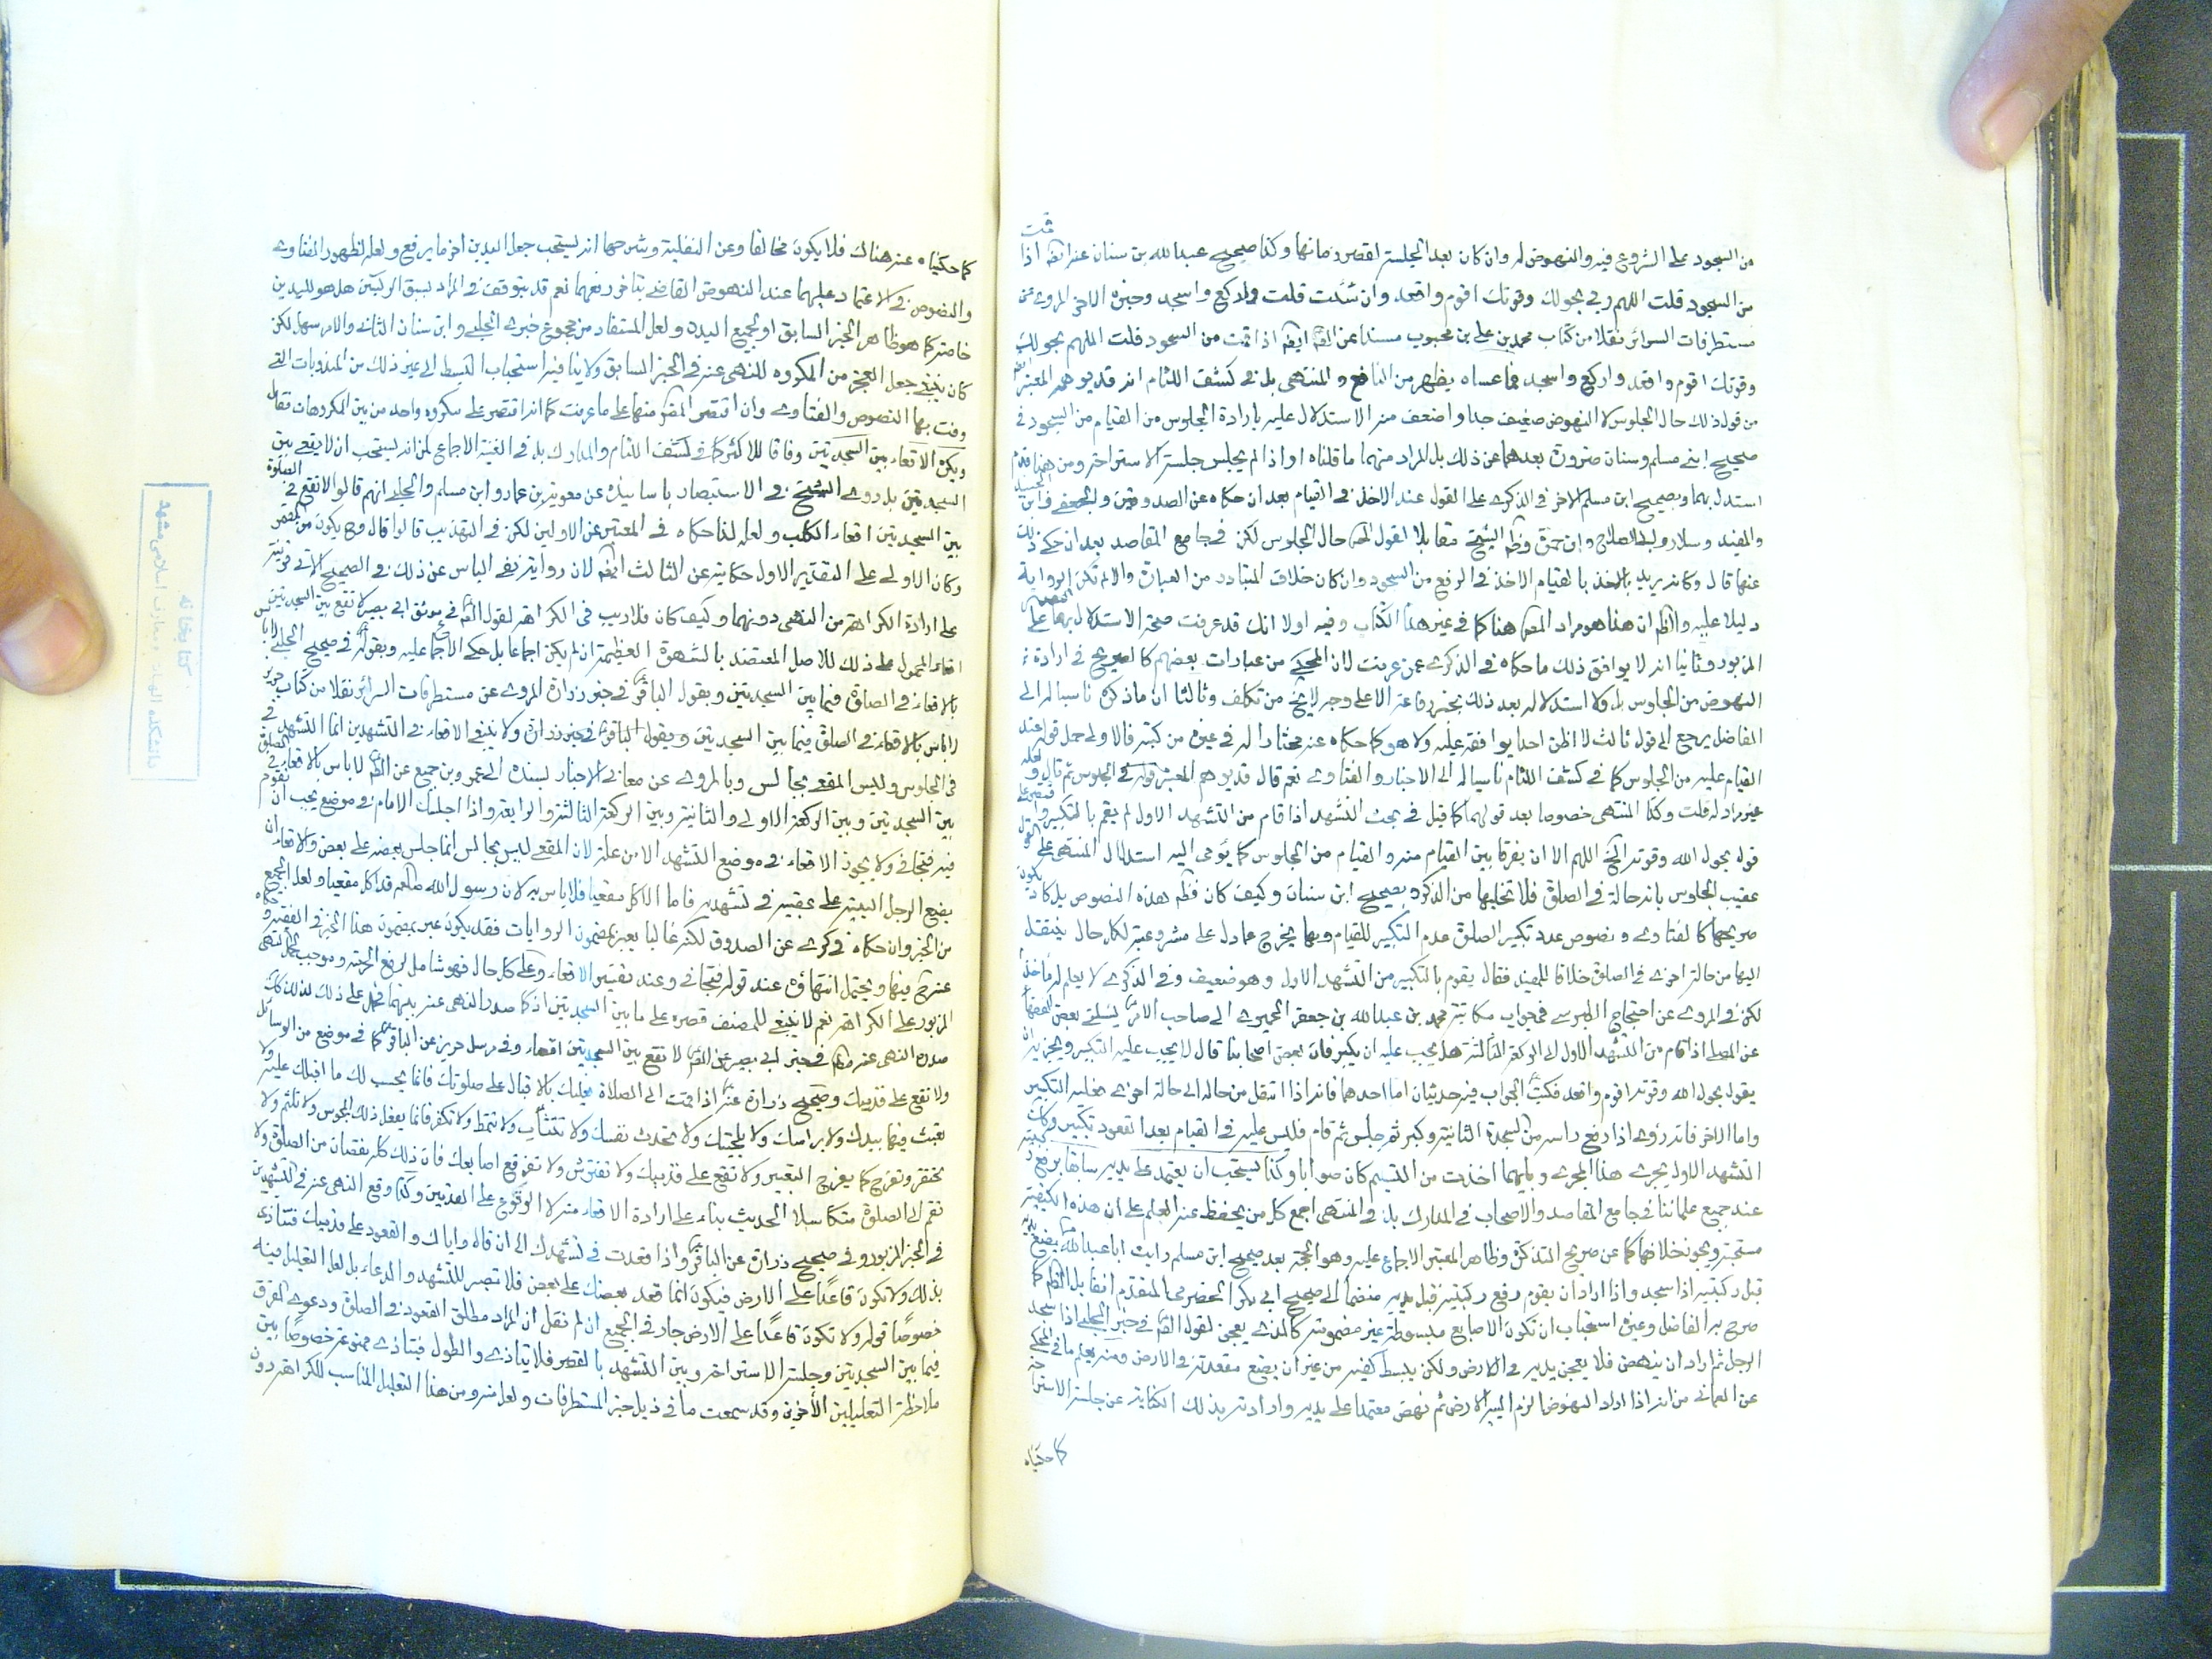 من السجود على الشروع فيه والنهوض له وان كان بعد الجلسة لقصر زمانها وكذا صحيح عبد الله بن سنان عنه ايضا اذا
قمت
من السجود قلت اللهم ربي بحولك وقوتك اقوم واقعد وان شئت قلت واركع واسجد وخبره الاخر المروي عن
مستطرفات السرائر نقلا من كتاب محمد بن علي بن محبوب مسندا عن ايضا اذا قمت من السجود قلت اللهم بحولك
وقوتك اقوم واقعد واركع واسجد فما عساه يظهر من النافع والمنتهى بل في كشف اللثام انه قد يوهمه المعتبر
من قول ذلك حال الجلوس لا النهوض ضعيف جدا واضعف منه الاستدلال عليه بارادة الجلوس من القيام من السجود في
صحيحي ابني مسلم وسنان ضرورة بعدهما عن ذلك بل المراد منهما ما قلناه او اذا لم يجلس جلسة الاستراحة ومن هنا
استدل بهما وبصحيح ابن مسلم الاخر في الذكرى على القول عند الاخذ في القيام بعد ان حكاه عن الصدوقين والجعفي وابن
والمفيد وسلار وابي الصلاح وابن حمزة وظاهر الشيخ مقابلا لقول المصنف حال الجلوس لكن في جامع المقاصد بعد ان حكى ذلك
عنها قال وكانه يريد بالاخذ بالقيام الاخذ في الرفع من السجود وان كان خلاف المتبادر من العبارة والا لم تكن الرواية
دليلا عليه والظاهر ان هذا هو مراد المصنف هنا كما في غير هذا الكتاب وفيه اولا انك قد عرفت صحة الاستدلال بهما على
المزبور وثانيا انه لا يوافق ذلك ما حكاه في الذكرى عمن عرفت لان المحكي من عبارات بعضهم كالصريح في ارادة
النهوض من الجلوس بل ولا استدلاله بعد ذلك بخبر رفاعة الا على وجه لا يخ من تكلف وثالثا ان ما ذكره ناسبا له الى
الفاضل يرجع الى قول ثالث لا اظن احدا يوافقه عليه ولا هو كما حكاه عنه مختارا له في غيره من كتبه فالاولى حمل قوله عند
القيام عليه من الجلوس كما في كشف اللثام ناسبا له الى الاخبار والفتاوى نعم قال قد يوهم المعتبر قوله في الجلوس ثم قال ولعله
غير مراد له قلت وكذا المنتهى خصوصا بعد قولهما كما قيل في بحث التشهد اذا قام من التشهد الاول لم يقم بالتكبير
قوله بحول الله وقوته الخ اللهم الا ان يفرقا بين القيام منه والقيام من الجلوس كما يومى اليه استدلال المنتهى على
عقيب الجلوس بانه حالة في الصلوة فلا تخليها من الذكر وبصحيح ابن سنان وكيف كان فظاهر هذه النصوص بل كاد
صريحها كالفتاوى ونصوص عدد تكبير الصلوة عدم التكبير للقيام وبها يخرج عما دل على مشروعيته لكل حال ينتقل
اليها من حالة اخرى في الصلوة خلافا للمفيد فقال يقوم بالتكبير من التشهد الاول وهو ضعيف وفي الذكرى لا يعلم له ماخذا
لكن في المروي عن احتجاج الطبرسي في جواب مكاتبة محمد بن عبد الله بن جعفر الحميري الى صاحب الامر يسئلني بعض الفقهاء
عن المصلي اذا قام من التشهد الاول الى الركعة الثالثة هل يجب عليه ان يكبر فان بعض اصحابنا قال لا يجب عليه التكبير ويجزيه ان
يقول بحول الله وقوته اقوم واقعد فكتب الجواب فيه حديثان اما احدهما فانه اذا انتقل من حالة الى حالة اخرى فعليه التكبير
واما الاخر فانه روي اذا رفع راسه من السجدة الثانية وكبر ثم جلس ثم قام فليس عليه في القيام بعد القعود تكبير وكذلك
التشهد الاول يجرى هذا المجرى وبايهما اخذت من التسليم كان صوابا وكذا يستحب ان يعتمد على يديه سابقا برفع ركبتيه
عند جميع علمائنا في جامع المقاصد والاصحاب في المدارك بل في المنتهى اجمع كل من يحفظ عنه العلم على ان هذه الكيفية
مستحبة ويجوز خلافها كما عن صريح التذكرة وظاهر المعتبر الاجماع عليه وهو الحجة بعد صحيح ابن مسلم رايت ابا عبد الله يضع
قبل ركبتيه اذا سجد واذا اراد ان يقوم رفع ركبتيه قبل يديه منضما الى صحيح ابي بكر الحضرمي المتقدم انفا بل الظاهر كما
صرح به الفاضل وغيره استحباب ان تكون الاصابع مبسوطة غير مضمومة كالذي يعجن لقول الصادق في خبر الحلبي اذا سجد
الرجل ثم اراد ان ينهض فلا يعجن بيديه في الارض ولكن يبسط كفيه من غير ان يضع مقعدته في الارض ومنه يعلم ما في المحكي
عن العماني من انه اذا اراد النهوض الزم اليتيه الارض ثم نهض معتمدا على يديه وارادته بذلك الكناية عن جلسة الاستراحة
كما حكيناه
كما حكيناه عنه هناك فلا يكون مخالفا وعن النفلية وشرحها انه يستحب جعل اليدين اخر ما يرفع ولعله لظهور الفتاوى
والنصوص في الاعتماد عليهما عند النهوض القاضي بتاخر رفعهما نعم قد يتوقف في المراد بسبق الركبتين هل هو لليدين
خاصة كما هو ظاهر الخبر السابق او لجميع البدن ولعل المستفاد من مجموع خبري الحلبي وابن سنان الثاني والامر سهل لكن
كان ينبغي جعل العجن من المكروه للنهي عنه في الخبر السابق ولا ينافيه استحباب البسط الى غير ذلك من المندوبات التي
وفت بها النصوص والفتاوى وان اقتصر المصنف منها على ما عرفت كما انه اقتصر على مكروه واحد من بين المكروهات فقال
ويكره الاقعاء بين السجدتين وفاقا للاكثر كما في كشف اللثام والمدارك بل في الغنية الاجماع لمن انه يستحب ان لا يقعي بين
السجدتين بل روى الشيخ في الاستبصار باسانيده عن معوية بن عمار وابن مسلم والحلبي انهم قالوا لا تقع في الصلوة
بين السجدتين اقعاء الكلب ولعله لذا حكاه في المعتبر عن الاولين لكن في التهذيب قالوا قال وح يكون من المضمر
وكان الاولى على التقدير الاول حكايته عن الثالث ايضا لان روايته نفي الباس عن ذلك في الصحيح الاتي قرينة
على ارادة الكراهة من النهي دونهما وكيف كان فلا ريب في الكراهة لقول الصادق في موثق ابي بصير لا تقع بين السجدتين
اقعاء المحمول على ذلك للاصل المعتضد بالشهرة العظيمة ان لم يكن اجماعا بل حكى الاجماع عليه وبقوله في صحيح الحلبي لا باس
بالاقعاء في الصلوة فيما بين السجدتين وبقول الباقر في خبر زرارة المروي عن مستطرفات السرائر نقلا من كتاب حريز
لا باس بالاقعاء في الصلوة فيما بين السجدتين وبقول الباقر في خبر زرارة ولا ينبغي الاقعاء في التشهدين انما التشهد
في الجلوس وليس المقعي بجالس وبالمروي عن معاني الاخبار بسنده الى عمرو بن جميع عن الصادق لا باس بالاقعاء في الصلوة
بين السجدتين وبين الركعة الاولى والثانية وبين الركعة الثالثة والرابعة واذا اجلسك الامام في موضع يجب ان تقوم
فيه فتجافى ولا يجوز الاقعاء في موضع التشهد الا من علة لان المقعي ليس بجالس انما جلس بعضه على بعض والاقعاء ان
يضع الرجل اليتيه على عقبيه في تشهديه فاما الاكل مقعيا فلا باس به لان رسول الله صلعم قد اكل مقعيا ولعل الجميع
من الخبر وان حكاه في كرى عن الصدوق لكنه غالبا يعبر بمضمون الروايات فقد يكون عبر بمضمون هذا الخبر في الفقيه
عنه ح فيها ويحتمل انتهاؤه عند قوله فتجافى وعند تفسير الاقعاء وعلى كل حال فهو شامل لرفع الحرمة وموجب لحمل النهي
المزبور على الكراهة نعم لا ينبغي للمصنف قصره على ما بين السجدتين اذ كما صدر النهي عنه بينهما فحمل على ذلك لذلك كذلك
صدر النهي عنه مط كما في خبر ابي بصير عن الصادق لا تقع بين السجدتين اقعاء وفي مرسل حريز عن الباقر كما في موضع من الوسائل
ولا تقع على قدميك وصحيح زرارة عنه اذا قمت الى الصلاة فعليك بالاقبال على صلوتك فانما يحسب لك ما اقبلت عليه ولا
تعبث فيها بيدك ولا براسك ولا بلحيتك ولا تحدث نفسك ولا تتثاب ولا تتمط ولا تكفر فانما يفعل ذلك المجوس ولا تلثم ولا
تحتفز وتفرج كما يفرج البعير ولا تقع على قدميك ولا تفترش ولا تفرقع اصابعك فان ذلك كله نقصان من الصلوة ولا
تقم الى الصلوة متكاسلا الحديث بناء على ارادة الاقعاء منه لا الوقوع على القدمين وكذا وقع النهي عنه في التشهدين
في الخبر المزبور وفي صحيح زرارة عن الباقر واذا قعدت في تشهدك الى ان قال واياك والقعود على قدميك فتتاذى
بذلك ولا تكون قاعدا على الارض فيكون انما قعد بعضك على بعض فلا تصبر للتشهد والدعاء بل لعل التعليل فيه
خصوصا قوله ولا تكون قاعدا على الارض جار في الجميع ان لم نقل ان المراد مطلق القعود في الصلوة ودعوى الفرق
فيما بين السجدتين وجلسة الاستراحة وبين التشهد بالقصر فلا يتاذى والطول فيتاذى ممنوعة خصوصا بين
ملاحظة التعليلين الاخرين وقد سمعت ما في ذيل خبر المستطرفات ولعله منه ومن هذا التعليل المناسب للكراهة دون
كتابخانه
دانشكده الهيات و معارف اسلامى مشهد